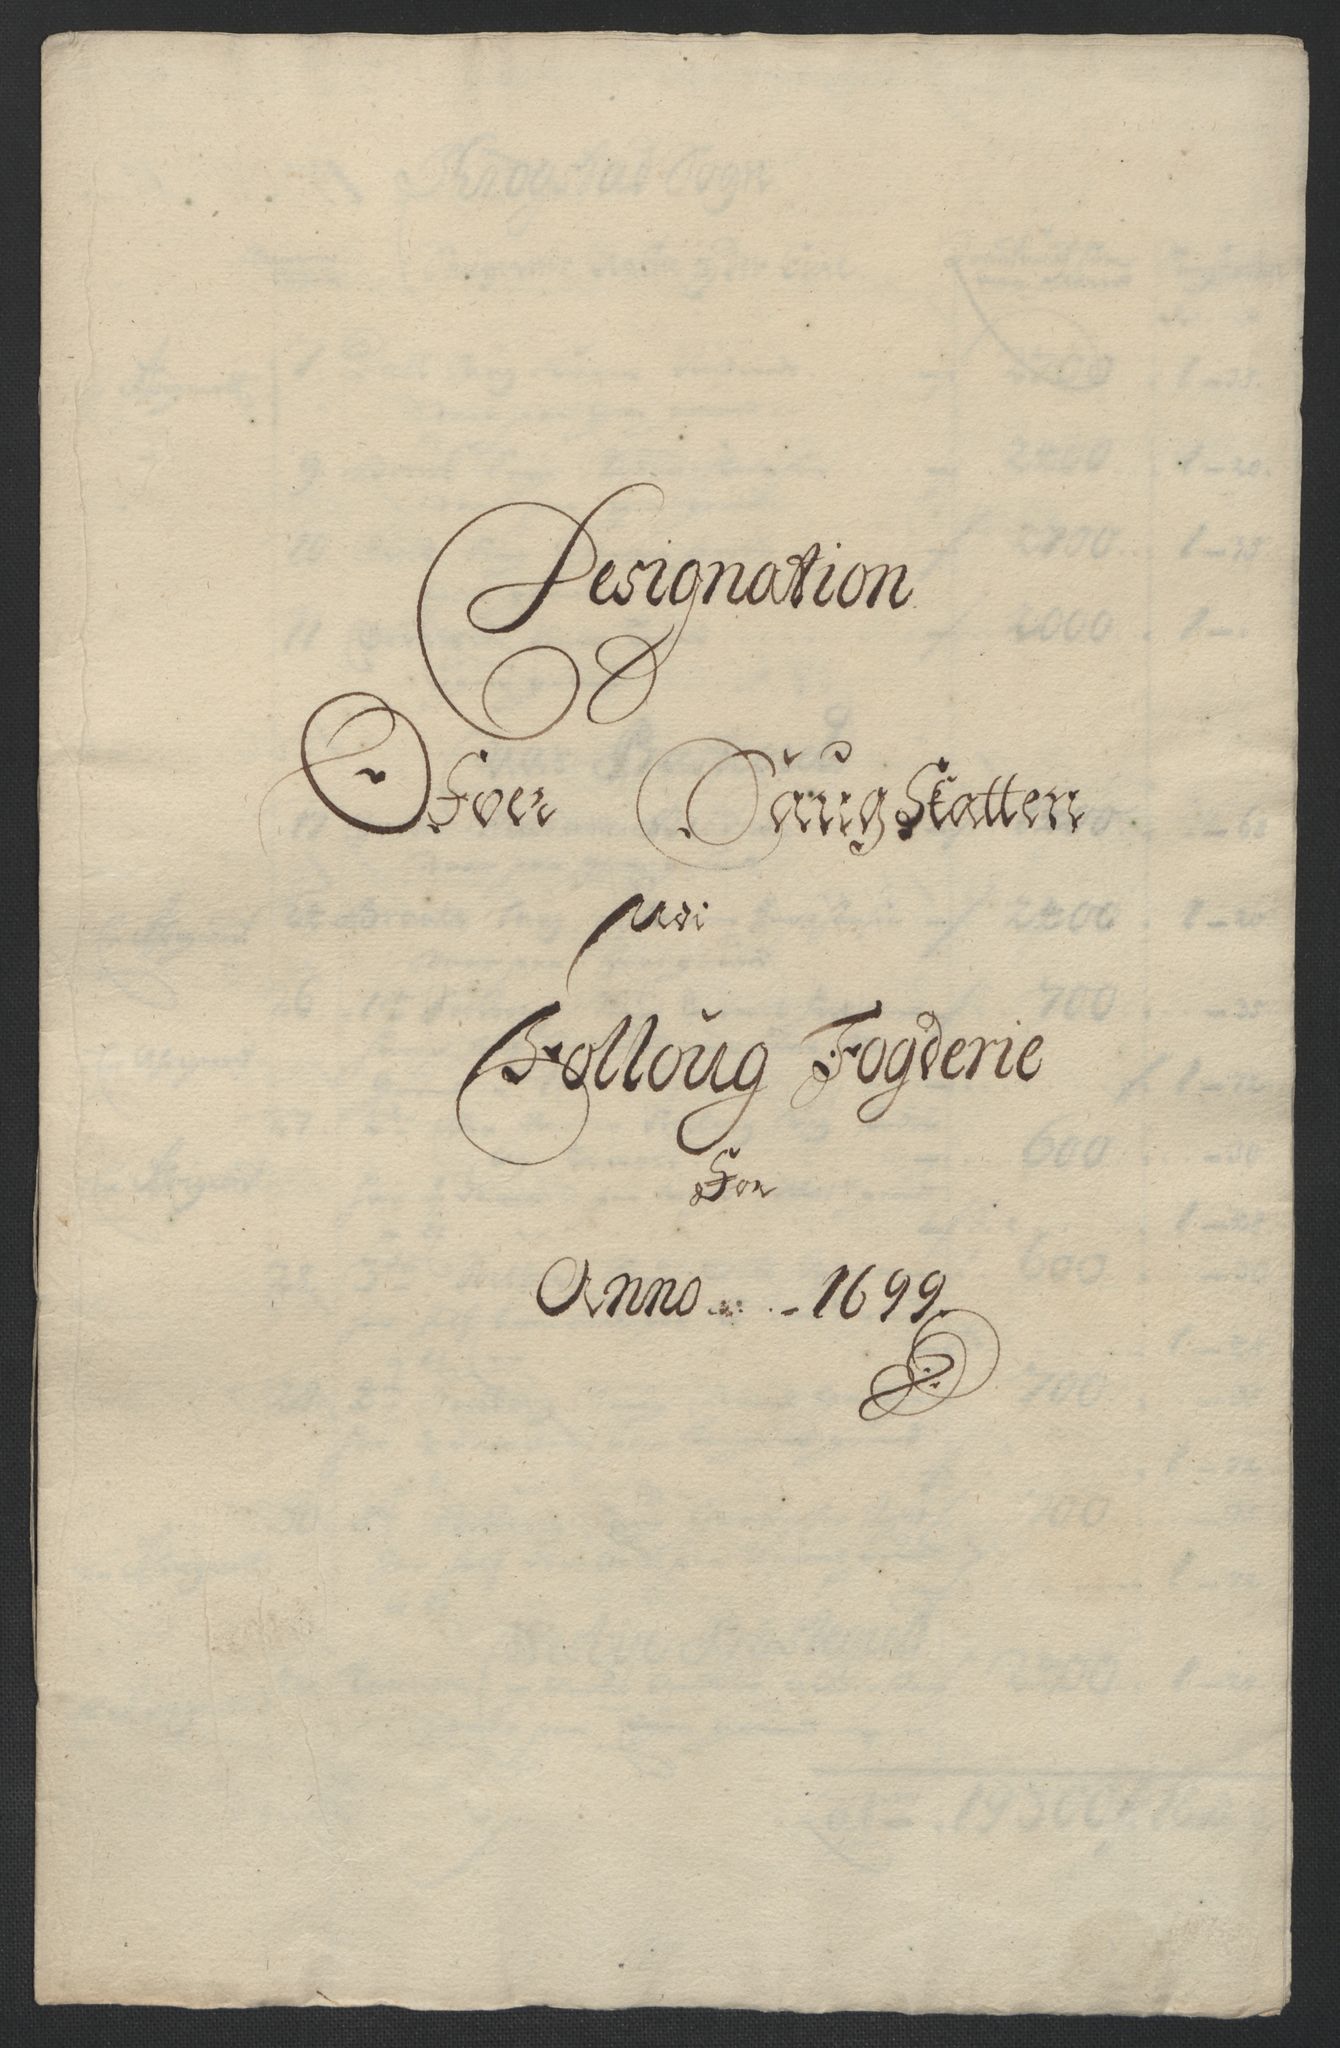 Designation
Ofver Saugskatten
udi
Folloug Fogderie
For
Anno - 1699